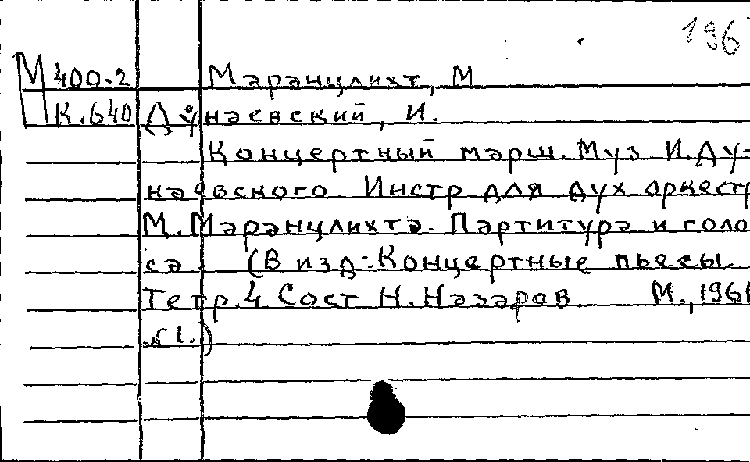 196
М 400-2 Маранцлихт, М
К.640 Дунаевский, И.
Концертный марш. Муз И.Ду-
наевского. Инстр для дух оркестр
М.Маранцлихта. Партитура и голо
са. (В изд.: Концертные пьесы.
Тетр.4 Сост Н.Назаров М., 1961